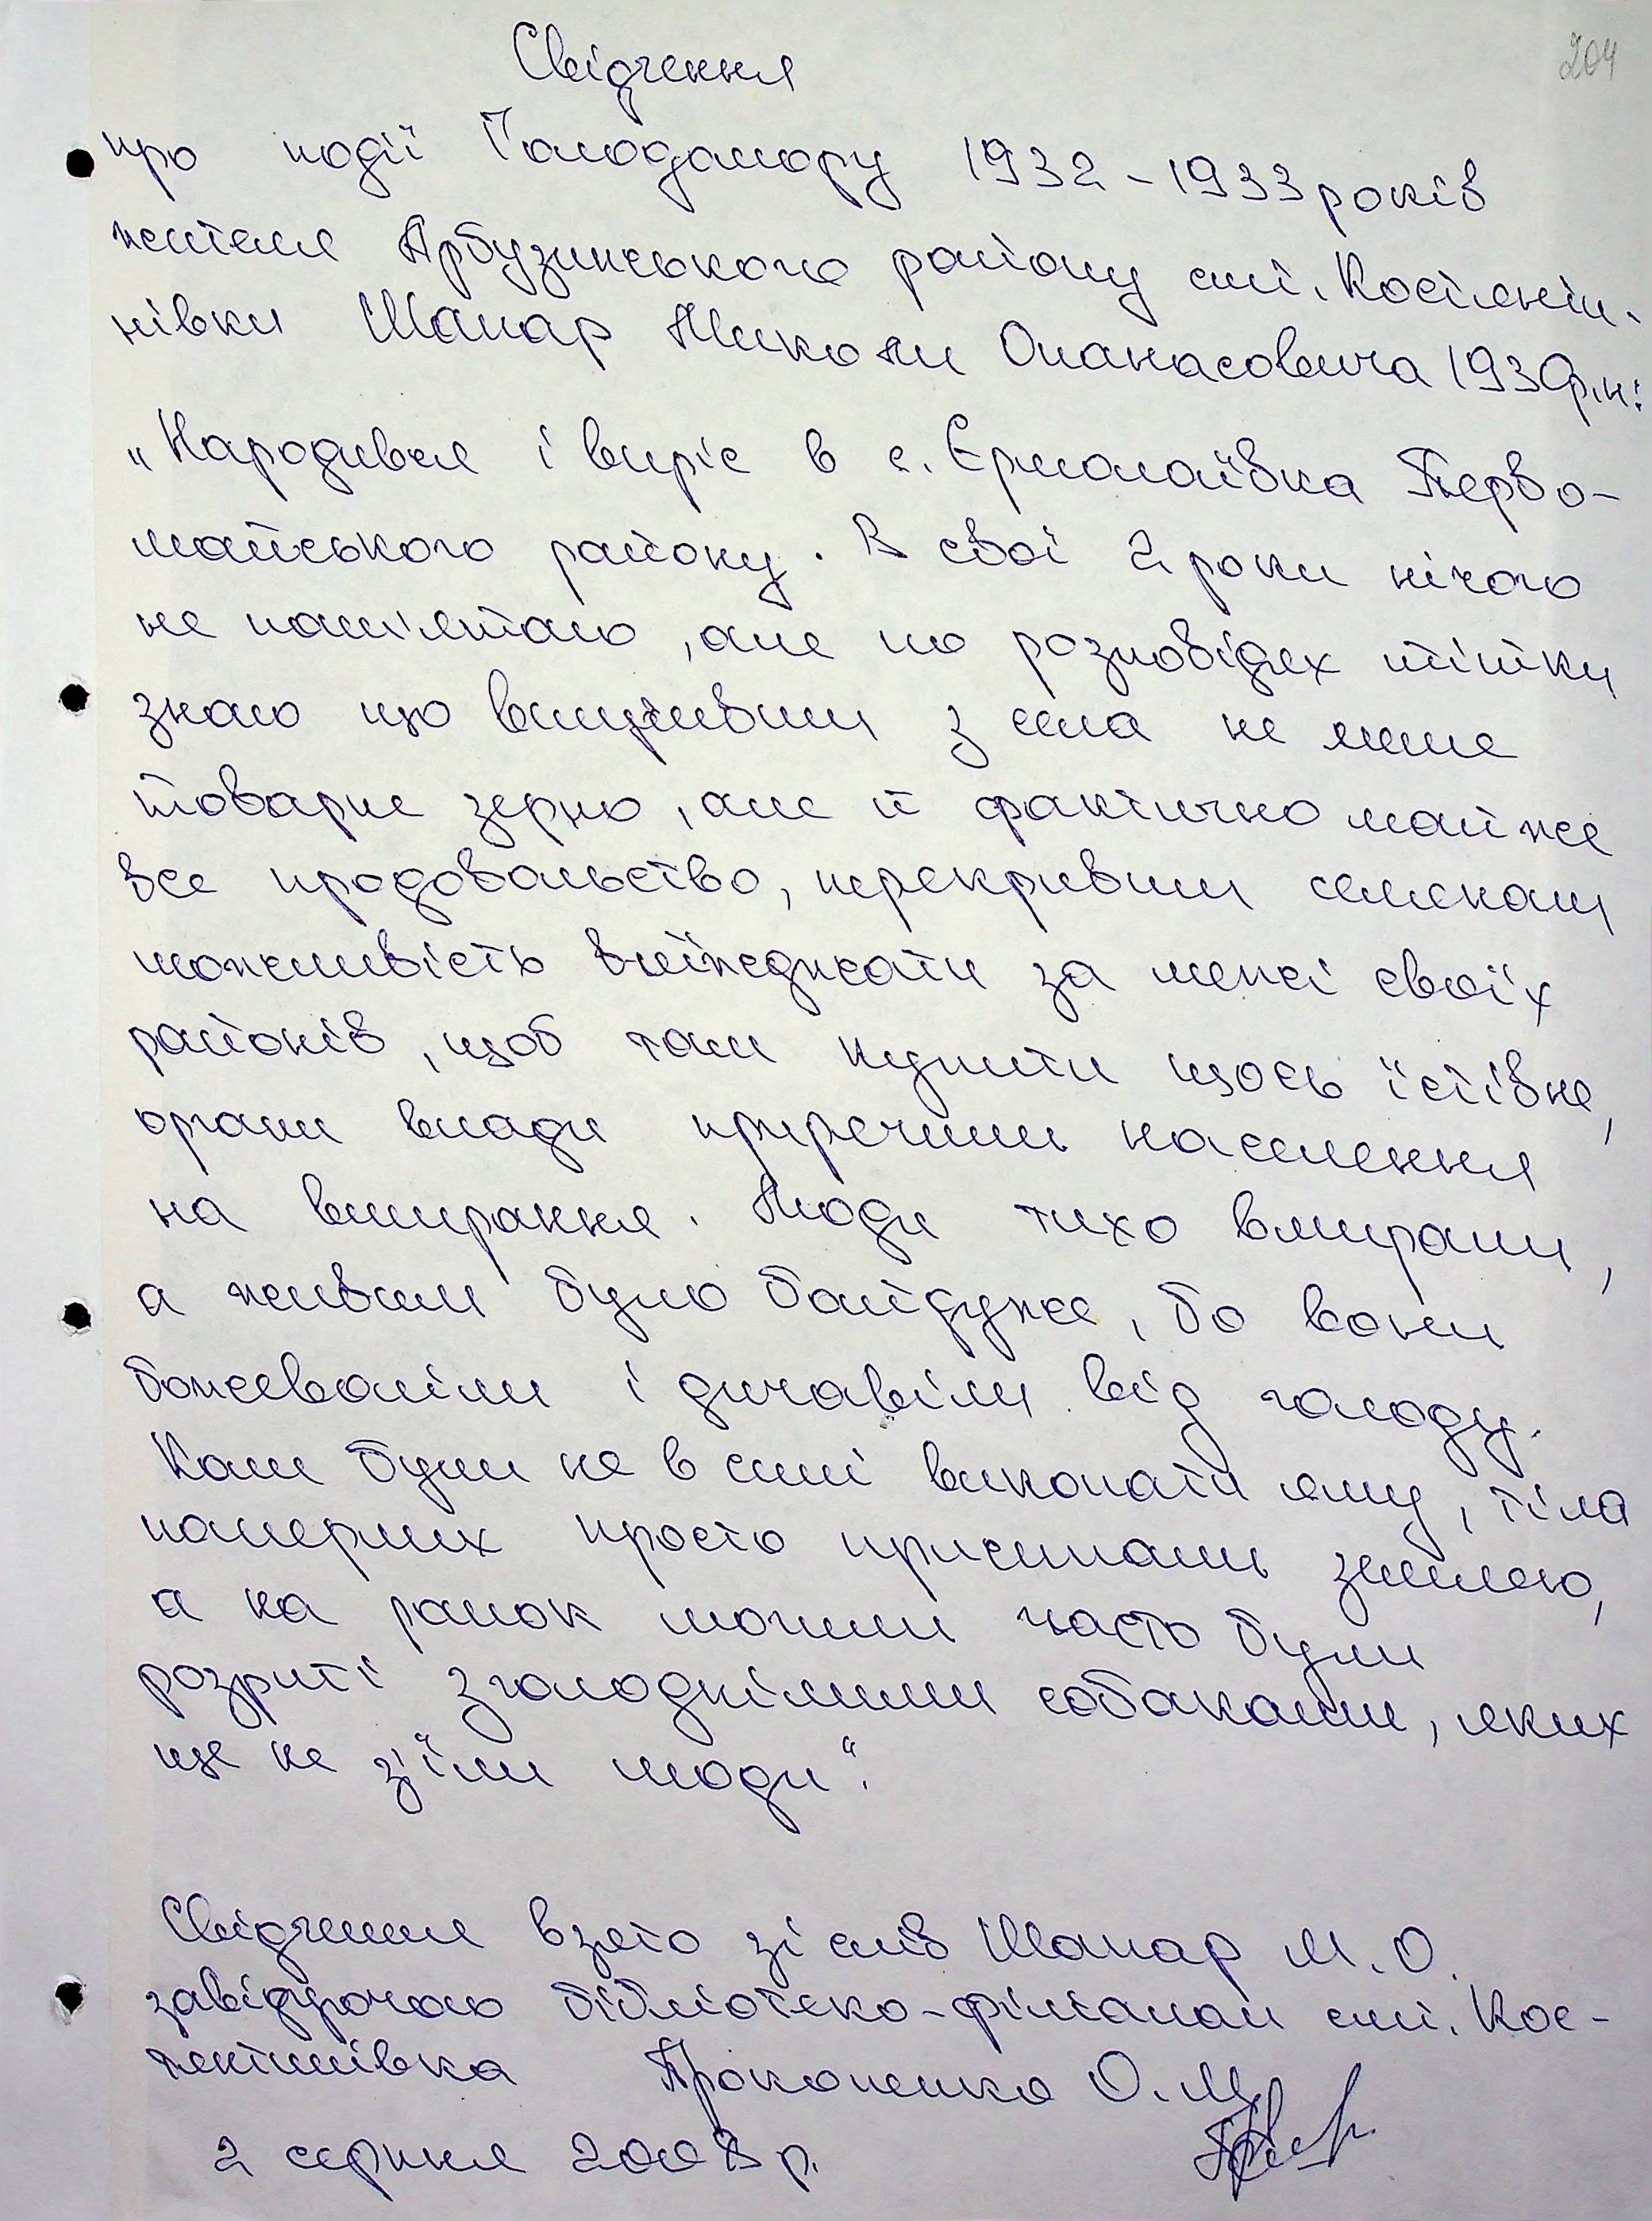 204
Свідчення
про події Голодомору 1932-1933 років
жителя Арбузинського району смт. Костянти-
нівки Шапар Миколи Опанасовича 1930р.н:
„Народився і виріс в с. Єрмолаївка Перво-
майського району. В свої 2 роки нічого
не пам'ятаю, але по розповідях тітки
знаю що вилучивши з села не лише
товарне зерно, але й фактично майже
все продовольство, перекривши селянам
можливість виїжджати за межі своїх
районів, щоб там купити щось їстівне,
органи влади прирекли населення
на вимирання. Люди тихо вмирали,
а живим було байдуже, бо вони
божеволіли і дичавіли від голоду.
Коли були не в силі викопати яму, тіла
померлих просто присипали землею,
а на ранок могили часто були
розриті зголоднілими собаками, яких
ще не з'їли люди".
Свідчення взято зі слів Шапар М.О.
завідуючою бібліотеко-філіалом смт. Кос-
тянтинівка Прокопенко О.М.
2 серпня 2008 р.